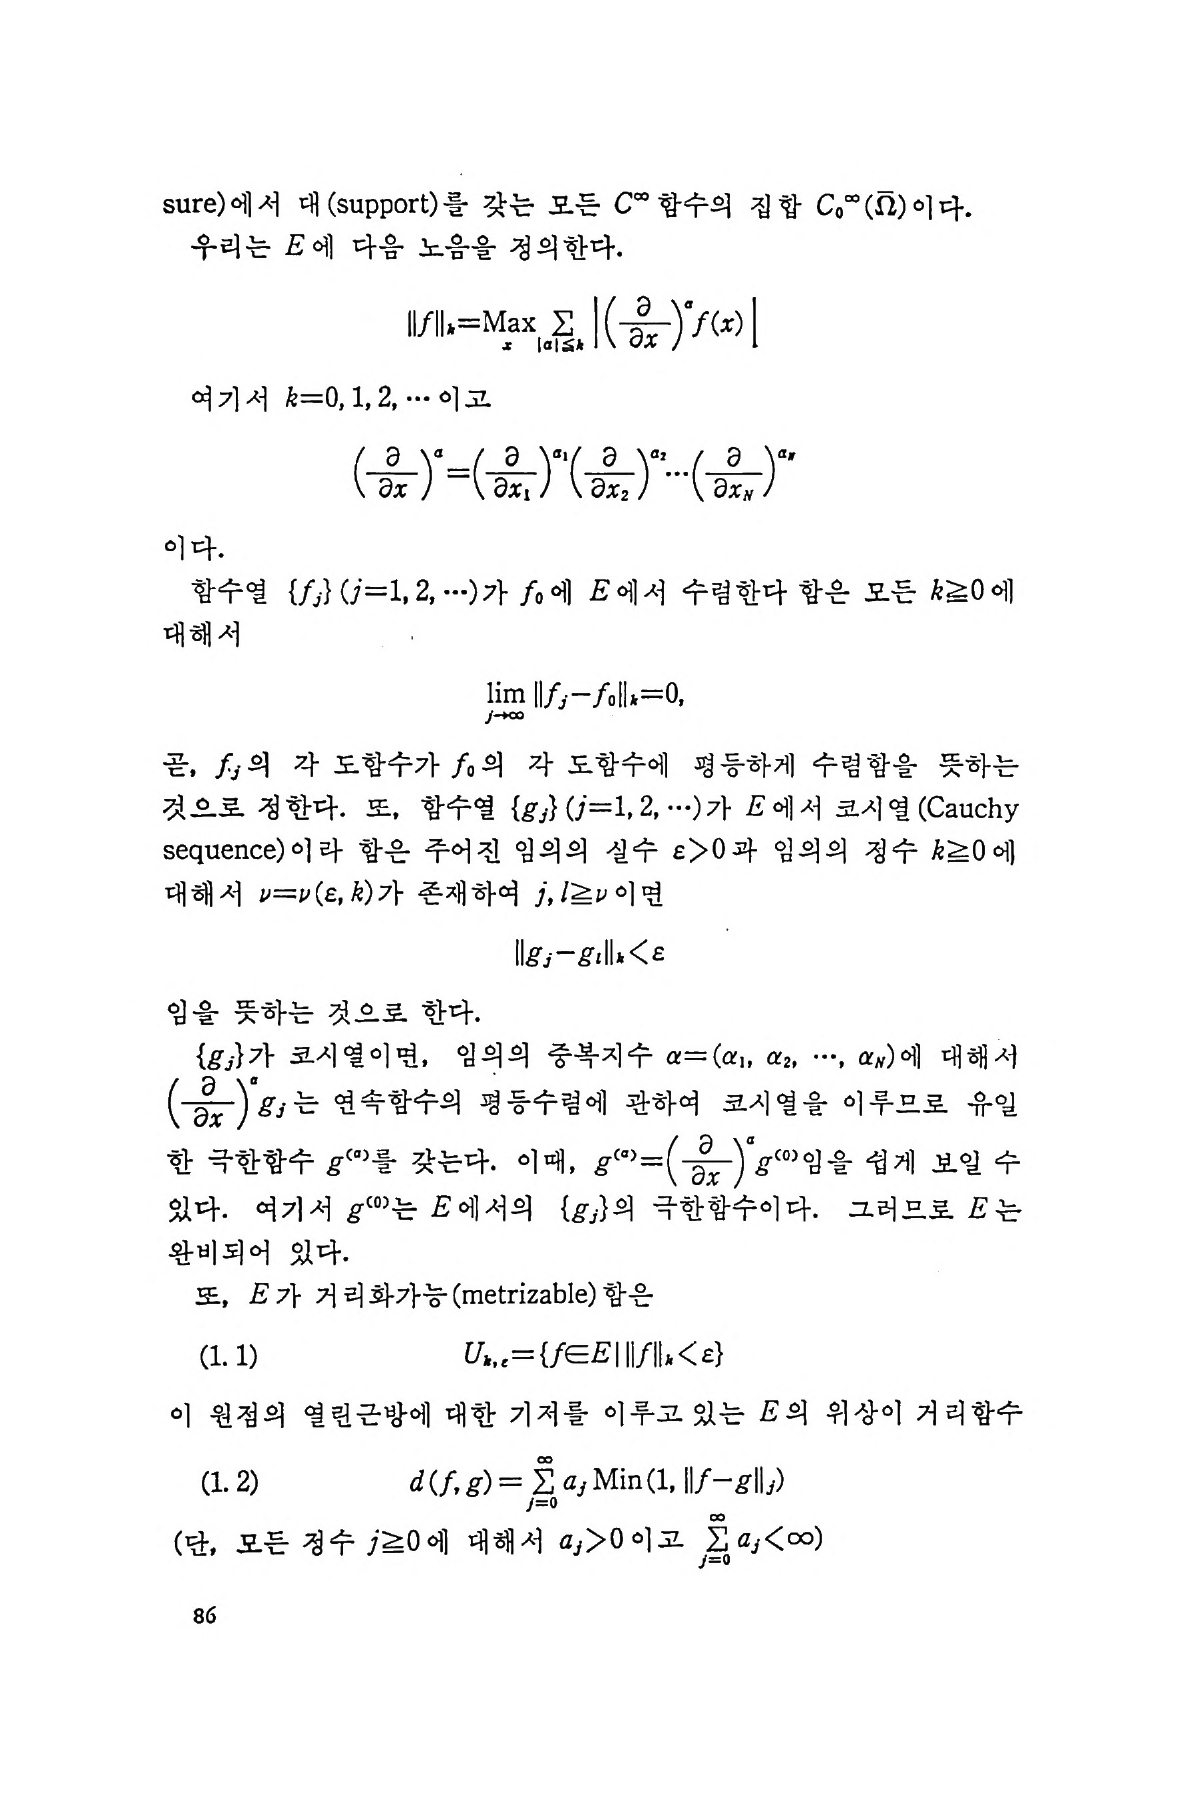 sure)에서 대(support)를 갖는 모든 C^∞ 함수의 집합 C₀^∞(Ω̄)이다.
우리는 E에 다음 노음을 정의한다.
‖f‖_k=Max_x Σ_{|α|≦k} |(∂/∂x)^α f(x)|
여기서 k=0, 1, 2, ⋯ 이고
(∂/∂x)^α=(∂/∂x₁)^{α₁}(∂/∂x₂)^{α₂}⋯(∂/∂x_N)^{α_N}
이다.
함수열 {f_j}(j=1, 2, ⋯)가 f₀에 E에서 수렴한다 함은 모든 k≧0에
대해서
lim_{j→∞} ‖f_j−f₀‖_k=0,
곧, f_j의 각 도함수가 f₀의 각 도함수에 평등하게 수렴함을 뜻하는
것으로 정한다. 또, 함수열 {g_j}(j=1, 2, ⋯)가 E에서 코시열(Cauchy
sequence)이라 함은 주어진 임의의 실수 ε>0과 임의의 정수 k≧0에
대해서 ν=ν(ε, k)가 존재하여 j, l≧ν이면
‖g_j−g_l‖_k<ε
임을 뜻하는 것으로 한다.
{g_j}가 코시열이면, 임의의 중복지수 α=(α₁, α₂, ⋯, α_N)에 대해서
(∂/∂x)^α g_j는 연속함수의 평등수렴에 관하여 코시열을 이루므로 유일
한 극한함수 g^(α)를 갖는다. 이때, g^(α)=(∂/∂x)^α g^(0)임을 쉽게 보일 수
있다. 여기서 g^(0)는 E에서의 {g_j}의 극한함수이다. 그러므로 E는
완비되어 있다.
또, E가 거리화가능(metrizable)함은
(1. 1) U_{k,ε}={f∈E| ‖f‖_k<ε}
이 원점의 열린근방에 대한 기저를 이루고 있는 E의 위상이 거리함수
(1. 2) d(f, g)=Σ_{j=0}^∞ a_j Min(1, ‖f−g‖_j)
(단, 모든 정수 j≧0에 대해서 a_j>0이고 Σ_{j=0}^∞ a_j<∞)
86